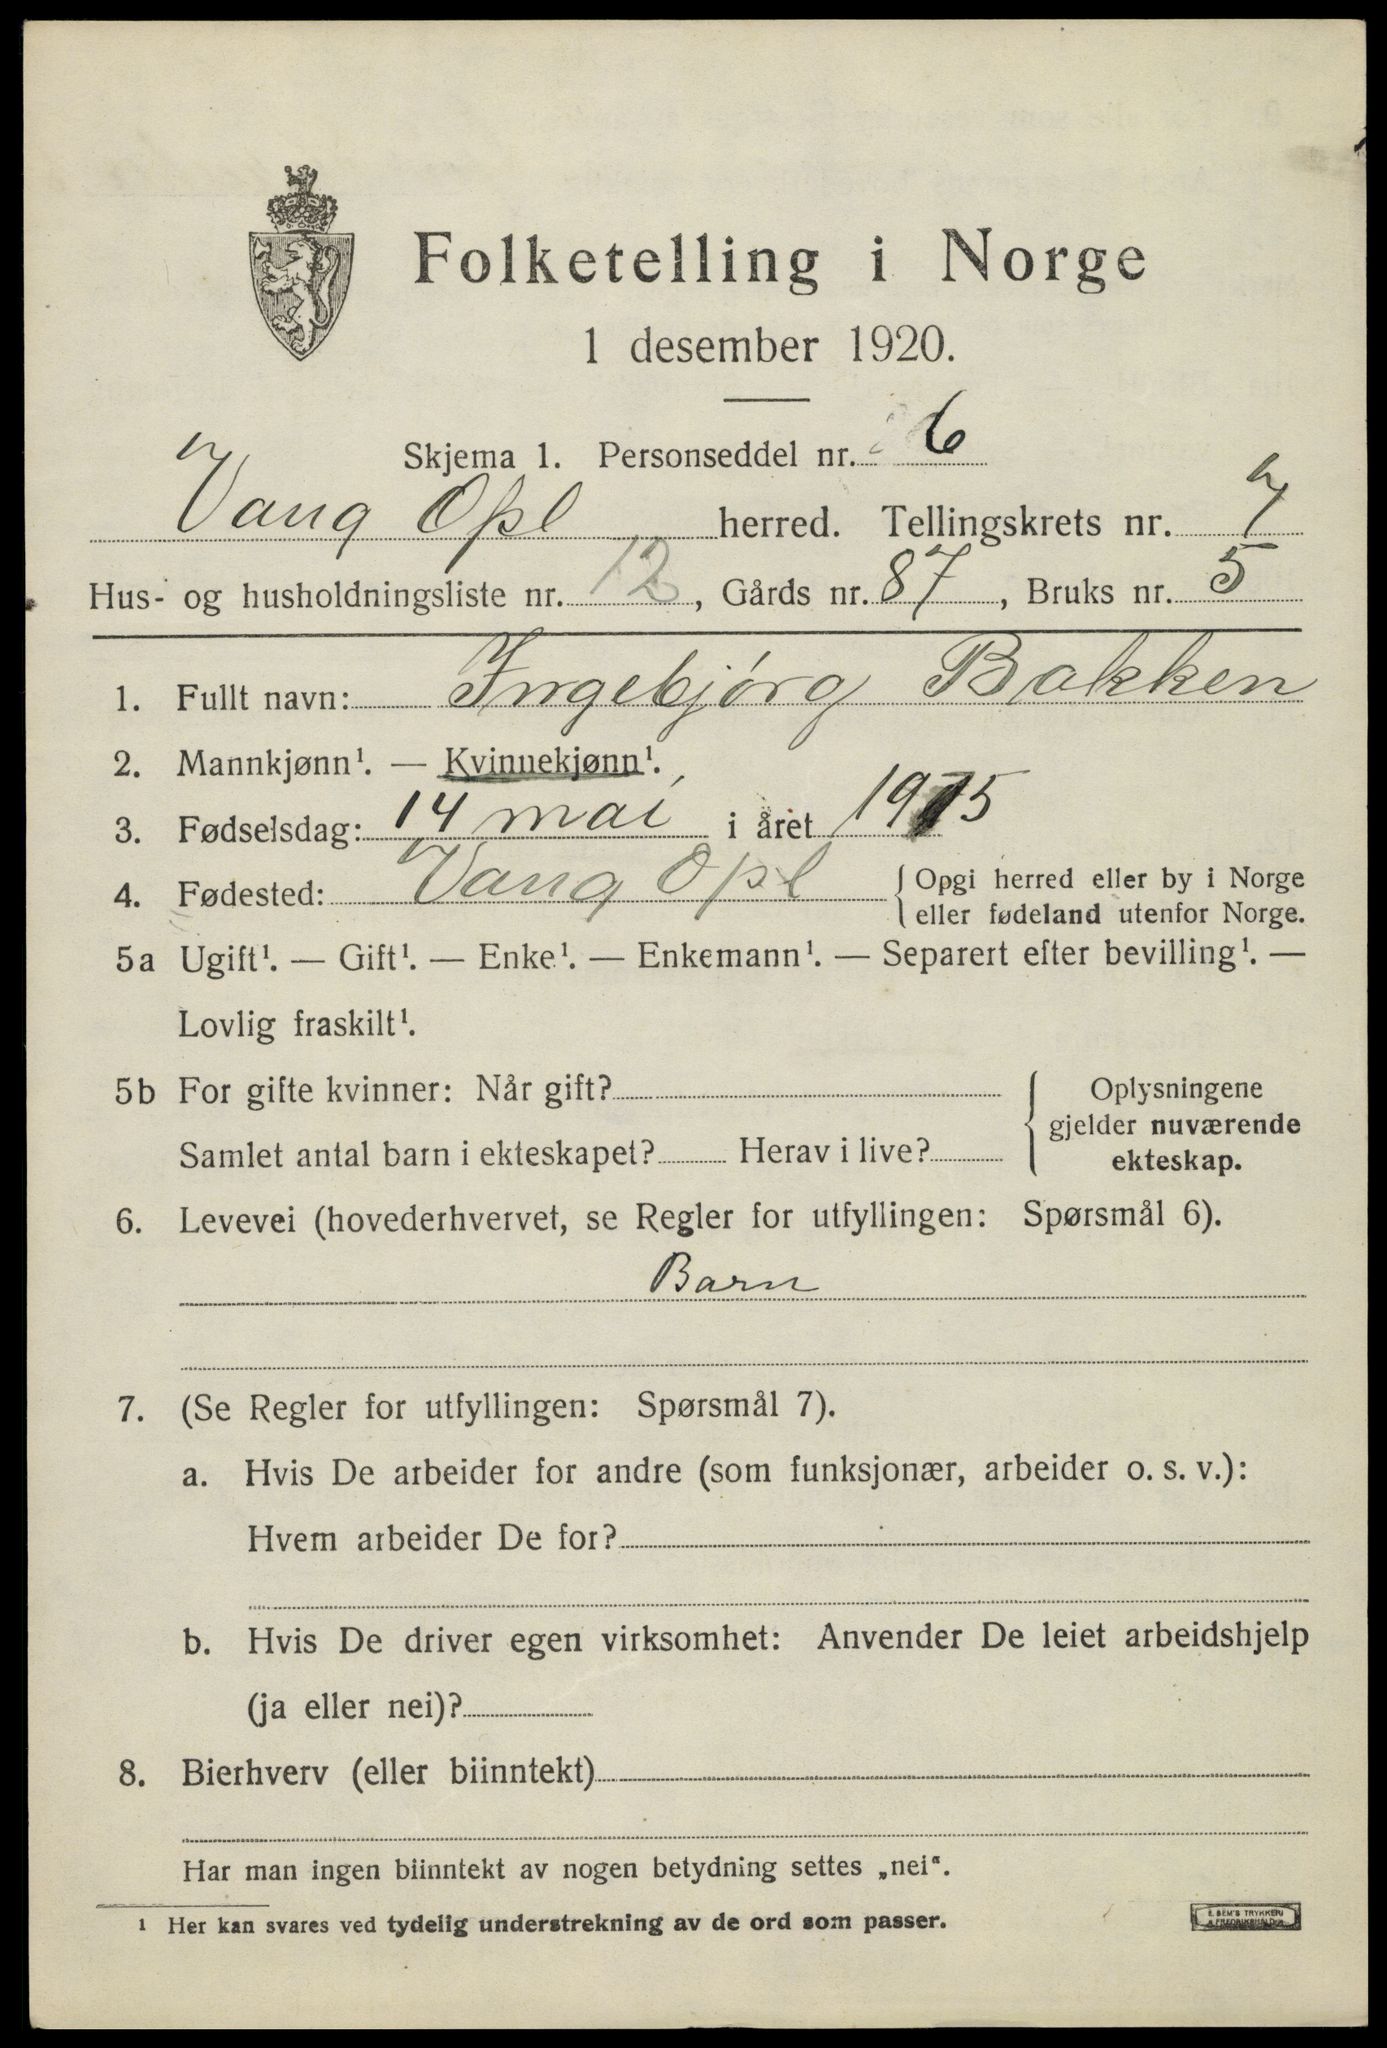 Folketelling i Norge
1 desember 1920.
Skjema 1. Personseddel nr. 6
Vang Opl herred. Tellingskrets nr. 7
Hus- og husholdningsliste nr. 12, Gårds nr. 87, Bruks nr. 5
1. Fullt navn: Ingebjørg Bakken
2. Mannkjønn¹. — Kvinnekjønn¹.
3. Fødselsdag: 14 mai i året 1915
4. Fødested: Vang Opl { Opgi herred eller by i Norge
eller fødeland utenfor Norge.
5a Ugift¹. — Gift¹. — Enke¹. — Enkemann¹. — Separert efter bevilling¹. —
Lovlig fraskilt¹.
5b For gifte kvinner: Når gift? { Oplysningene
gjelder nuværende
Samlet antal barn i ekteskapet? Herav i live? ekteskap.
6. Levevei (hovederhvervet, se Regler for utfyllingen: Spørsmål 6).
Barn
7. (Se Regler for utfyllingen: Spørsmål 7).
a. Hvis De arbeider for andre (som funksjonær, arbeider o. s. v.):
Hvem arbeider De for?
b. Hvis De driver egen virksomhet: Anvender De leiet arbeidshjelp
(ja eller nei)?
8. Bierhverv (eller biinntekt)
Har man ingen biinntekt av nogen betydning settes „nei“.
¹ Her kan svares ved tydelig understrekning av de ord som passer.
E. SEM'S TRYKKERI
FREDRIKSHALD